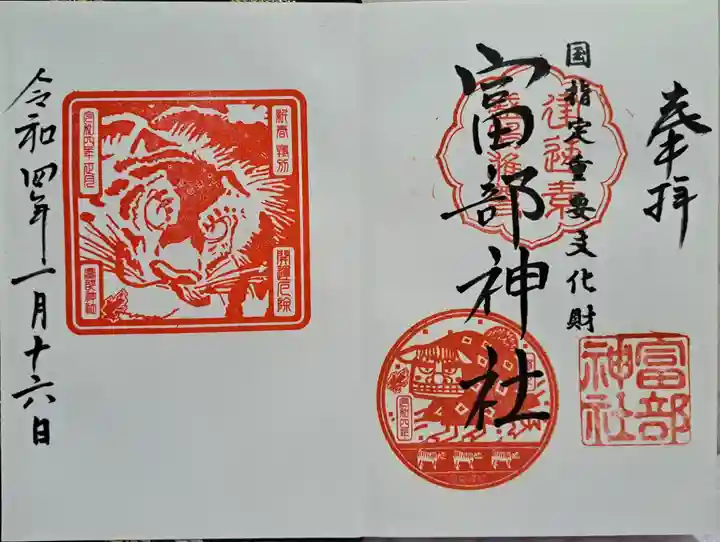 奉拝
国指定重要文化財
富部神社
富部
神社
新春 特別
開運厄除
令和四年 正月
富部神社
令和四年
令和四年一月十六日